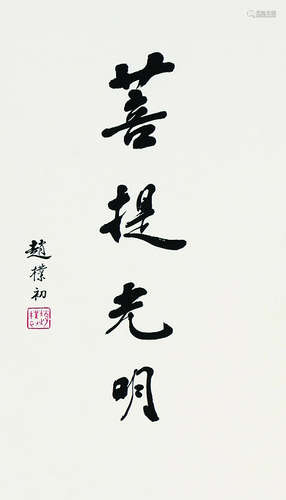 菩提光明
趙樸初